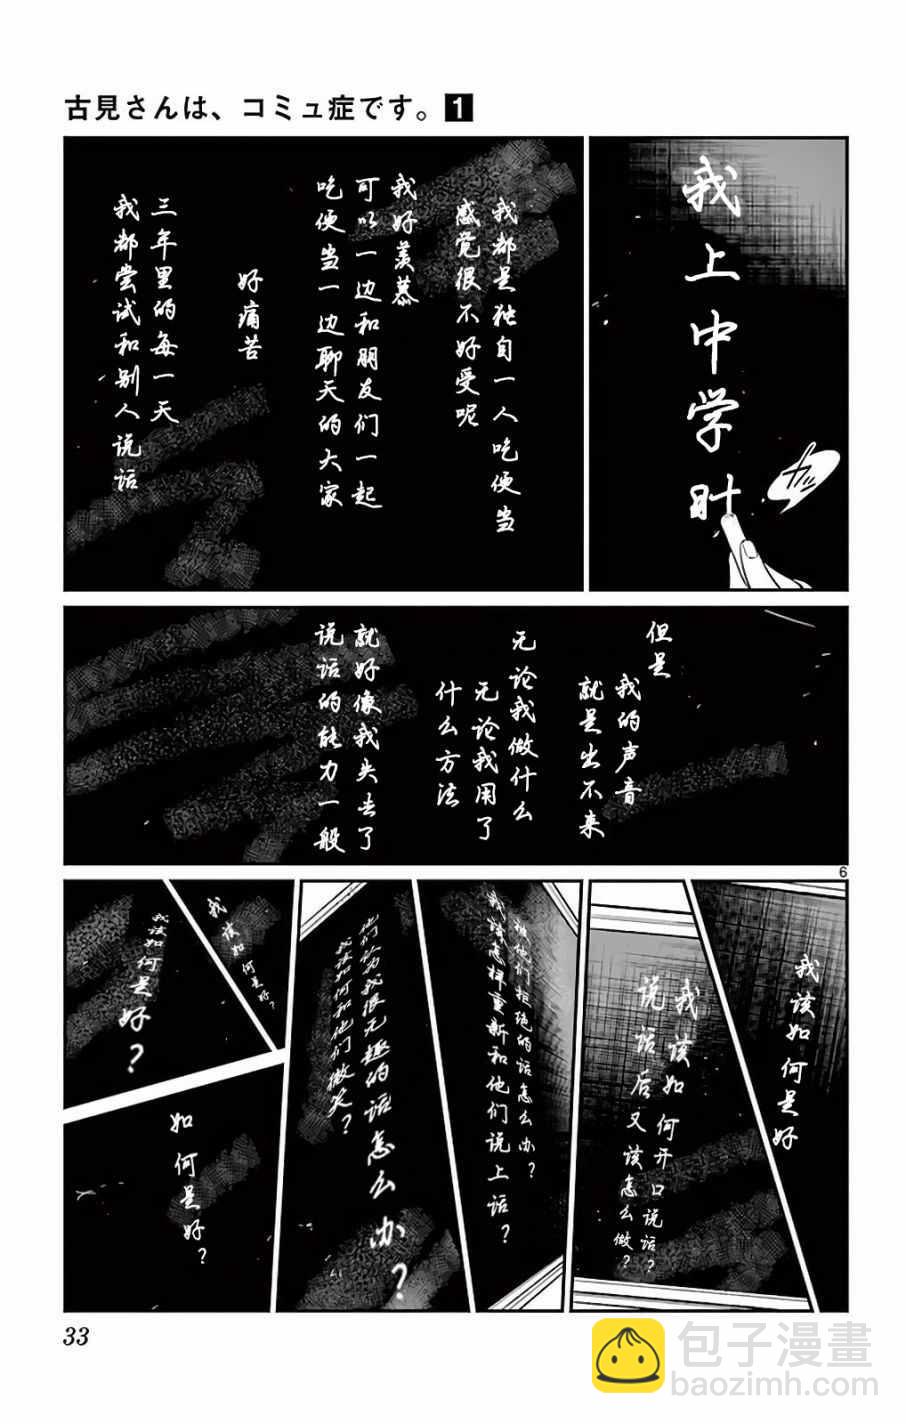 古見さんは、コミュ症です。1
我上中学时
カッ
我都是独自一人吃便当
感觉很不好受呢
我好羡慕
可以一边和朋友们一起
吃便当一边聊天的大家
好痛苦
三年里的每一天
我都尝试和别人说话
但是
我的声音
就是出不来
无论我做什么
无论我用了
什么方法
就好像我失去了
说话的能力一般
6
我该如何是好
我该如何开口说话？
说话后又该怎么做？
被他们拒绝的话怎么办？
我该怎样重新和他们说上话？
他们认为我很无趣的话怎么办？
我该如何和他们微笑？
我该如何是好？
我该如何是好？
如何是好？
33
包子漫畫
baozimh.com